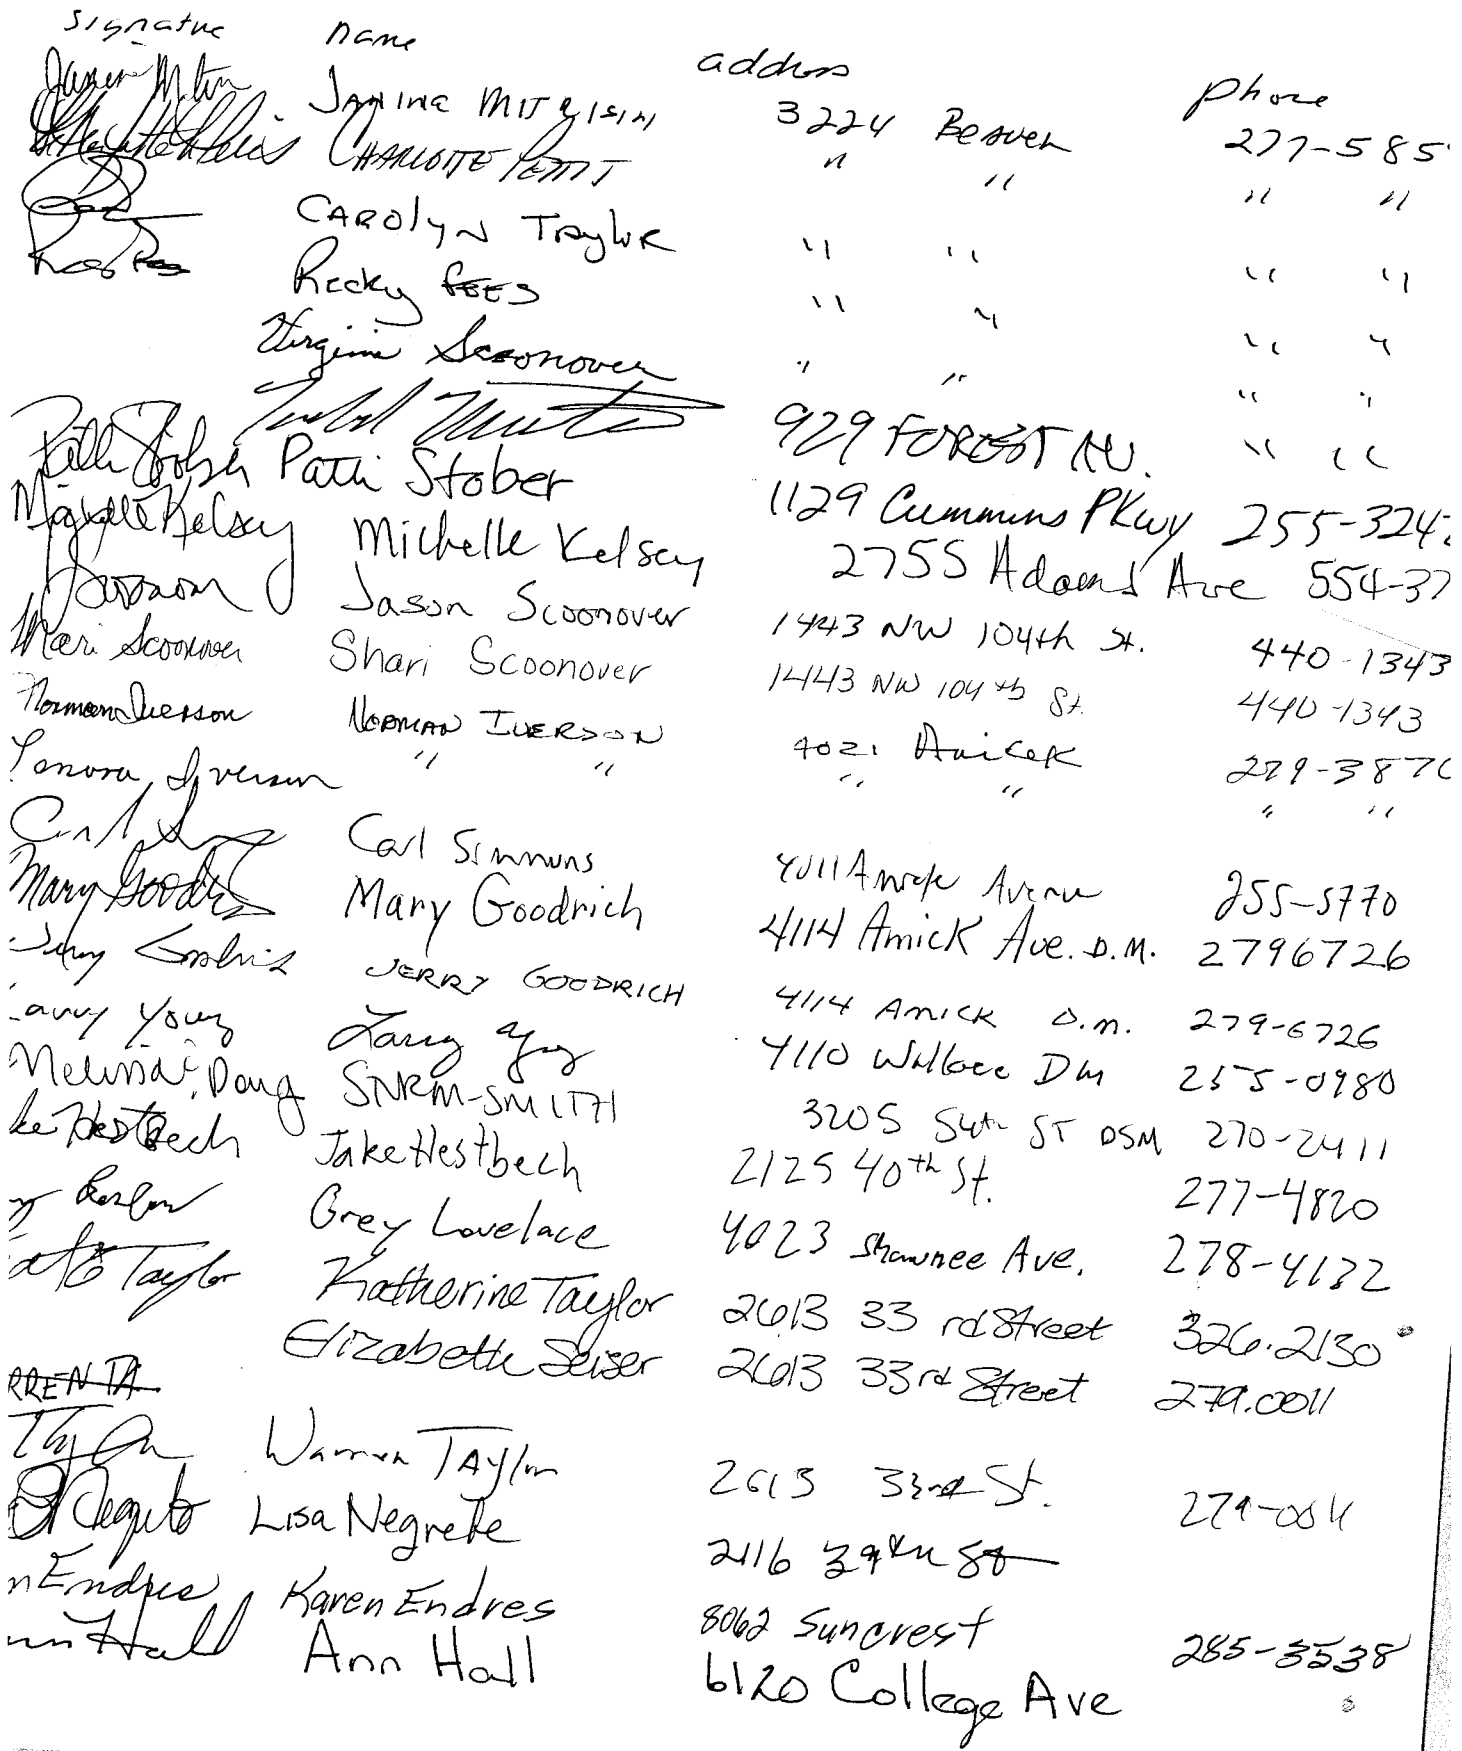 signature name address phone
Janine 3224 Beaver 277-585
Charlotte Pettit " " " "
Carolyn Taylor " " " "
Ricky Fees " " " "
Virginia Scoonover " " " "
929 Forest Av. " "
Patti Stober Patti Stober 1129 Cummins PKwy 255-324
Michelle Kelsey Michelle Kelsey 2755 Adams Ave 554-37
Jason Scoonover 1443 NW 104th St. 440-1343
Shari Scoonover Shari Scoonover 1443 NW 104th St. 440-1343
Norman Iverson Norman Iverson 4021 279-387
Lenora Iverson " " " " " "
Carl Simmons 4011 Avenue 255-5770
Mary Goodrich Mary Goodrich 4114 Amick Ave. D.M. 2796726
Jerry Goodrich JERRY GOODRICH 4114 Amick D.M. 279-6726
Larry Young Larry Young 4110 Wallace DM 255-0980
Melinda Doug SMITH 3205 54th ST DSM 270-2411
ke Hestbech Jake Hestbech 2125 40th St. 277-4820
Grey Lovelace 4023 Shawnee Ave. 278-4132
Taylor Katherine Taylor 2613 33rd Street 326.2130
Elizabeth Seiser 2613 33rd Street 279.0011
RREN TA
Warren Taylor 2613 33rd St. 279-0011
Lisa Negrete 2116 39th St
n Endres Karen Endres 8062 Suncrest
nn Hall Ann Hall 6120 College Ave 285-3538